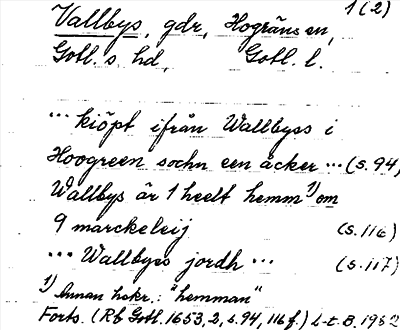 1 (2)
Vallbys, gdr, Hogräns sn,
Gotl. s. hd, Gotl. l.
... kiöpt ifrån Wallbyss i
Hoogreen sochn een åcker ... (s. 94)
Wallbys är 1 heelt hemm 1) om
9 marckeleij (s. 116)
... Wallbyes jordh ... (s. 117)
1) Annan hskr.: "hemman"
Forts. (Rb Gotl. 1653, 2, s. 94, 116 f.) L-t. B. 1952